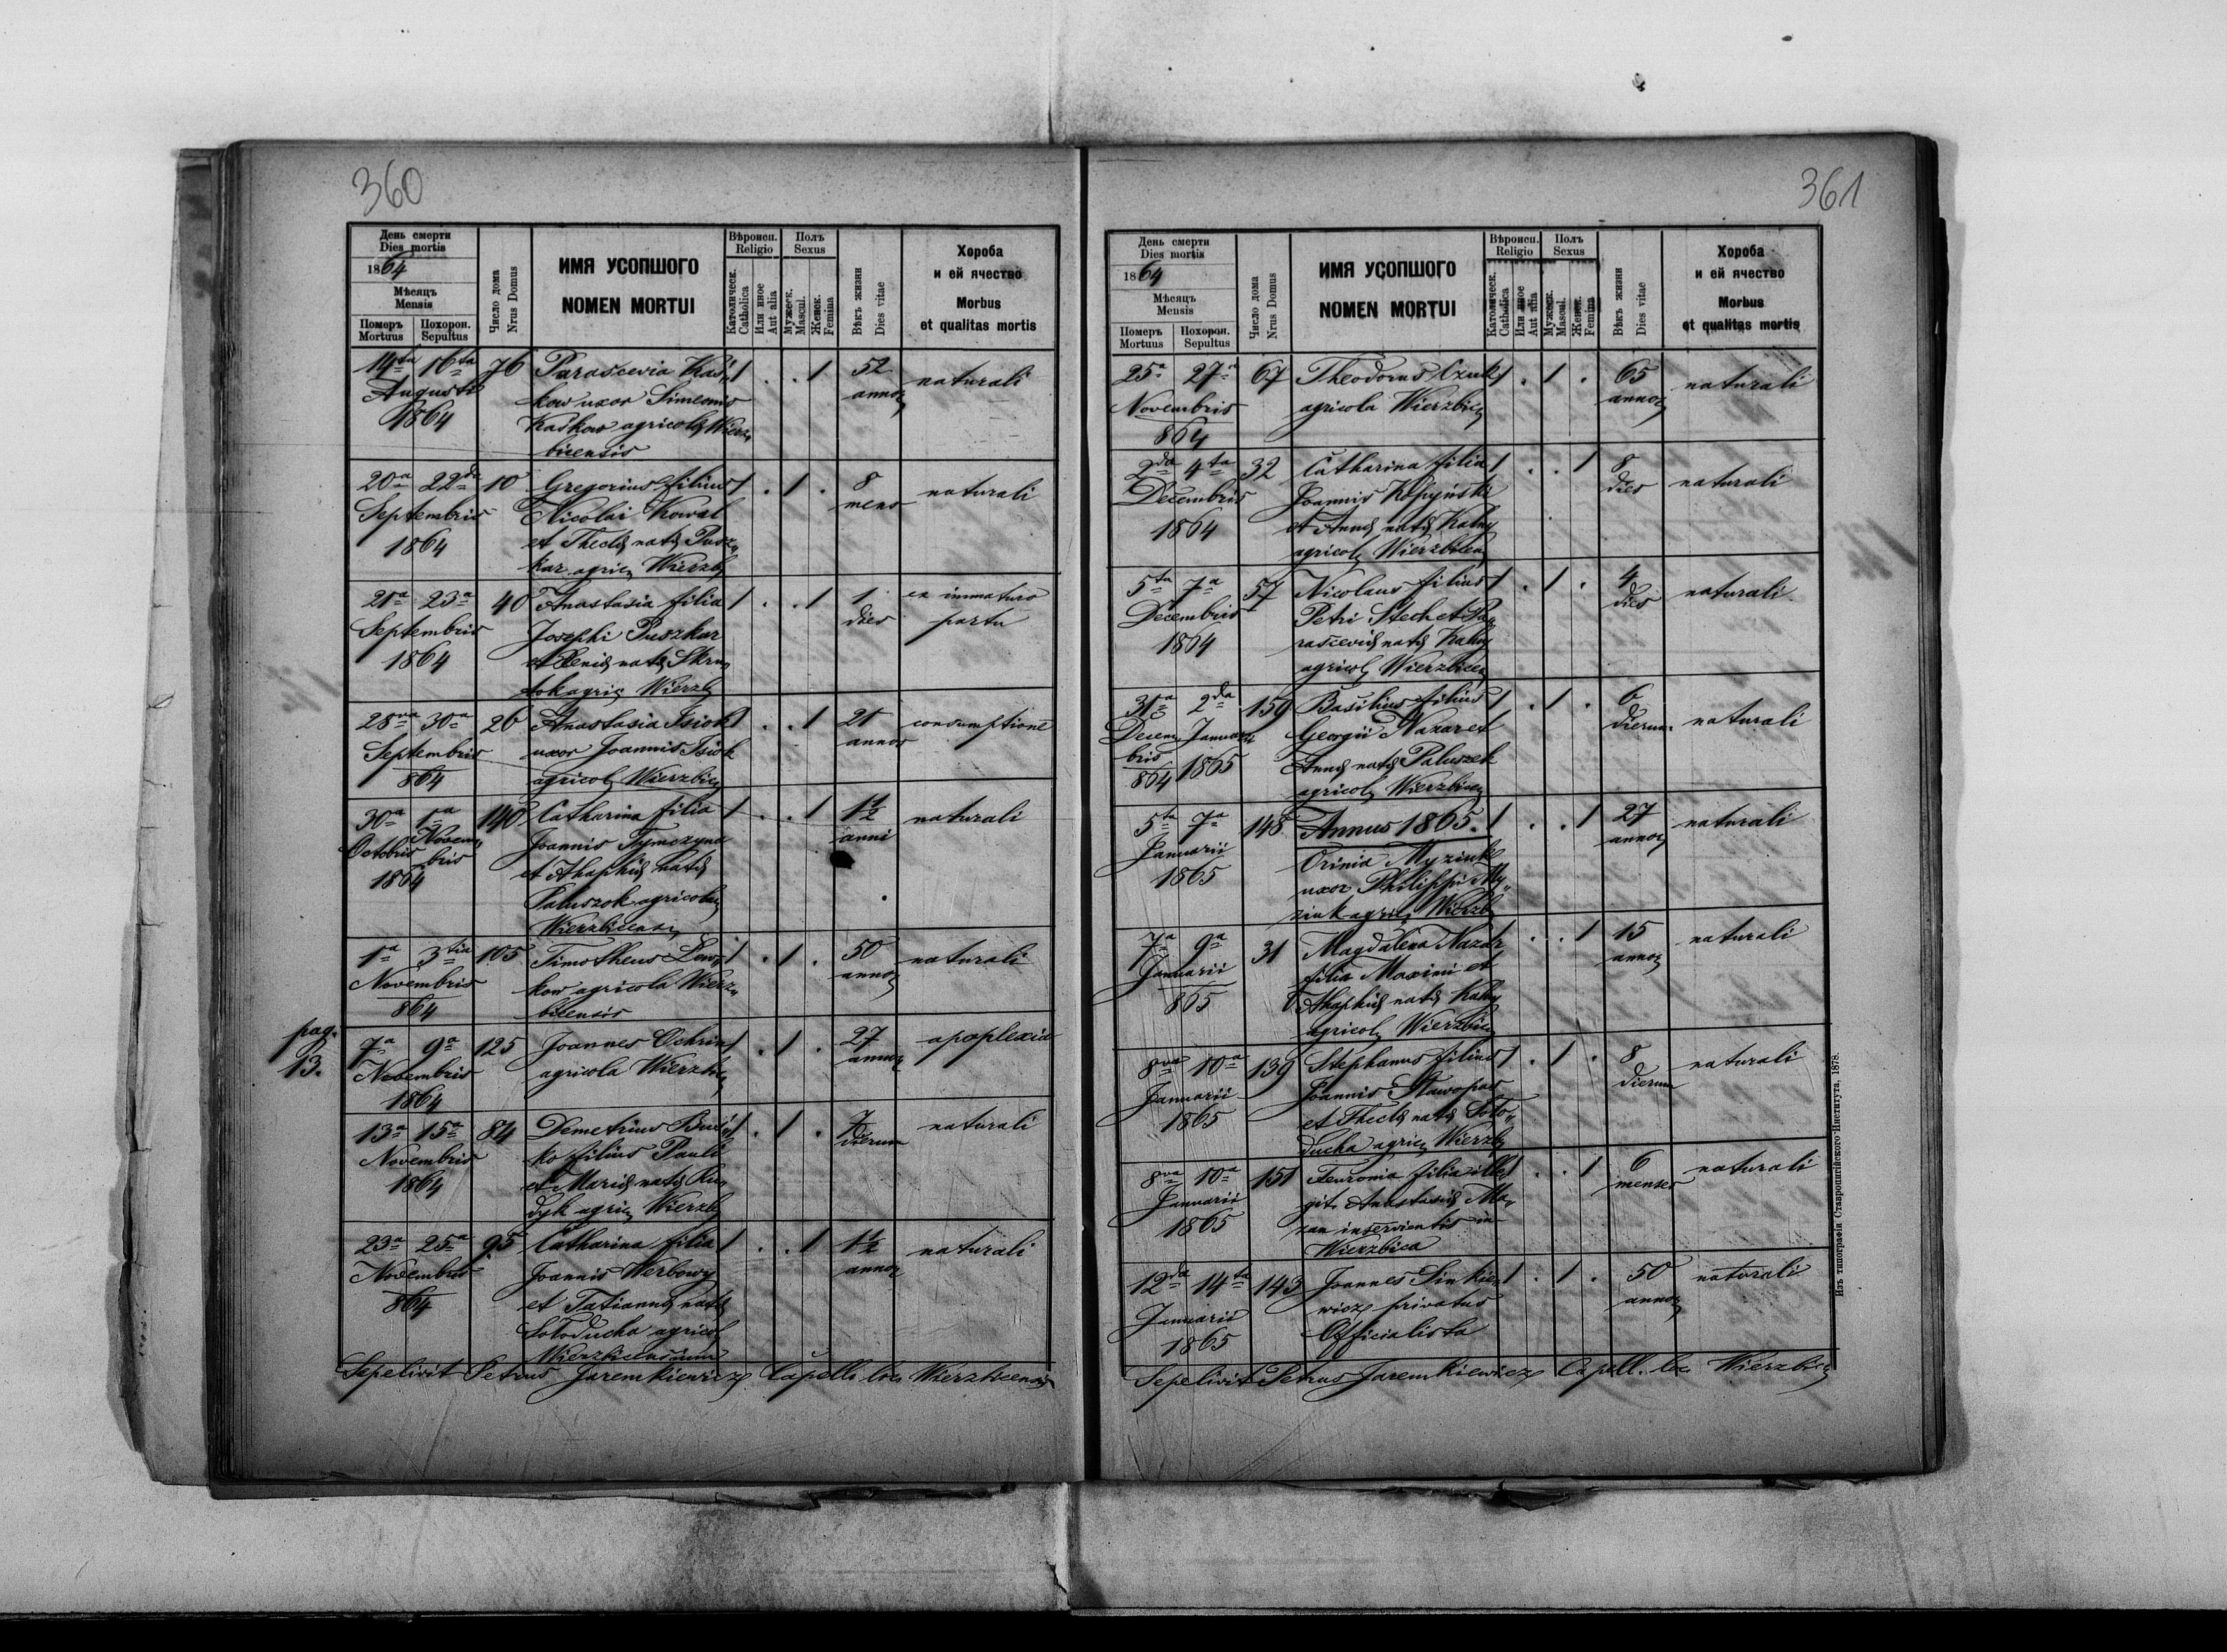 360
День смерти
Dies mortis
1864
Мѣсяцъ
Mensis
Померъ Похорон.
Mortuus Sepultus
Число дома
Nrus Domus
ИМЯ УСОПШОГО
NOMEN MORTUI
Вѣроисп.
Religio
Католическ.
Catholica
Или иное
Aut alia
Полъ
Sexus
Мужеск.
Mascul.
Женск.
Femina
Вѣкъ жизни
Dies vitae
Хороба
и ей ячество
Morbus
et qualitas mortis
14ta 16ta 76 Parascevia Kaś„ 1 . . 1 52 naturali
Augusti kow uxor Simeonis annor
1864 Kaśkow agricolae Wierz„
bicensis
20a 22da 10 Gregorius filius 1 . 1 . 8 naturali
Septembris Nicolai Kowal mens
1864 et Theclae natae Pusz„
kar agric Wierzb
21a 23a 40 Anastasia filia 1 . . 1 1 ex immaturo
Septembris Josephi Puszkar dies partu
1864 natae Skru„
tok agric Wierzb
28va 30a 26 Anastasia Tsiok 1 . . 1 21 consumptione
Septembris uxor Joannis Tsiok annor
864 agricol Wierzbic
30a 1a 140 Catharina filia 1 . . 1 1½ naturali
Octobris Novem„ Joannis Tymczyna anni
bris et Ahaphiae natae
1864 Paluszok agricolae
Wierzbicensi
1a 3tia 105 Timotheus Lew„ 1 . 1 . 50 naturali
Novembris kow agricola Wierz„ annor
864 bicensis
pag.
13.
7a 9a 125 Joannes Ochrin 1 . 1 . 27 apoplexia
Novembris agricola Wierzbic annor
1864
13a 15a 84 Demetrius Buś„ 1 . 1 . 7 naturali
Novembris ko filius Pauli dierum
1864 et Mariae natae Ru„
dyk agric Wierzb
23a 25a 95 Catharina filia 1 . . 1 1½ naturali
Novembris Joannis Werbowy annor
864 et Tatiannae natae
Sołoducha agricol
Wierzbicensium
Sepelivit Petrus Jaremkiewicz Capell loc Wierzbicensis
361
День смерти
Dies mortis
1864
Мѣсяцъ
Mensis
Померъ Похорон.
Mortuus Sepultus
Число дома
Nrus Domus
ИМЯ УСОПШОГО
NOMEN MORTUI
Вѣроисп.
Religio
Католическ.
Catholica
Или иное
Aut alia
Полъ
Sexus
Мужеск.
Mascul.
Женск.
Femina
Вѣкъ жизни
Dies vitae
Хороба
и ей ячество
Morbus
et qualitas mortis
25a 27a 67 Theodorus Czuk 1 . 1 . 65 naturali
Novembris agricola Wierzbic annor
864
2da 4ta 32 Catharina filia 1 . . 1 8 naturali
Decembris Joannis dies
1864 et Annae natae Kalny
agricol Wierzbicen
5ta 7a 57 Nicolaus filius 1 . 1 . 4 naturali
Decembris Petri Stech et Pa„ dies
1864 rasceviae natae Kalny
agricol Wierzbicen
31a 2da 159 Basilius filius 1 . 1 . 6 naturali
Decem„ Januarii Georgii Nazar et dierum
bris Annae natae Paluszek
864 1865 agricol Wierzbic
5ta 7a 148 Annus 1865. 1 . . 1 27 naturali
Januarii Orinia Myziuk annor
1865 uxor Philippi My„
ziuk agric Wierzb
7a 9a 31 Magdalena Nazar . . 1 15 naturali
Januarii filia Maximi et annor
865 Ahaphiae natae Kalny
agricol Wierzbic
8va 10a 139 Stephanus filius 1 . 1 . 8 naturali
Januarii Joannis dierum
1865 et Theclae natae Soło„
ducha agric Wierzb
8va 10a 151 Feuronia filia ille„ 1 . . 1 6 naturali
Januarii git. Anastasiae Ma„ menses
1865 zan inservientis in
Wierzbica
12da 14ta 143 Joannes Sinkie„ 1 . 1 . 50 naturali
Januarii wicz privatus annor
1865 Officialista
Sepelivit Petrus Jaremkiewicz Capell. loc Wierzbic
Изъ типографіи Ставропигійского Института, 1878.